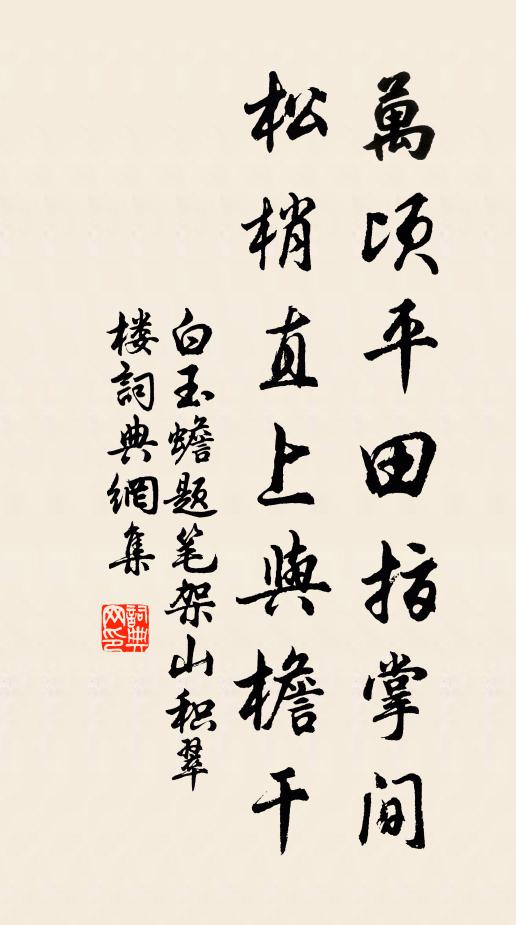 萬頃平田指掌間
松梢直上與檐干
白玉蟾题笔架山积翠
楼詞典網集
詞典网印